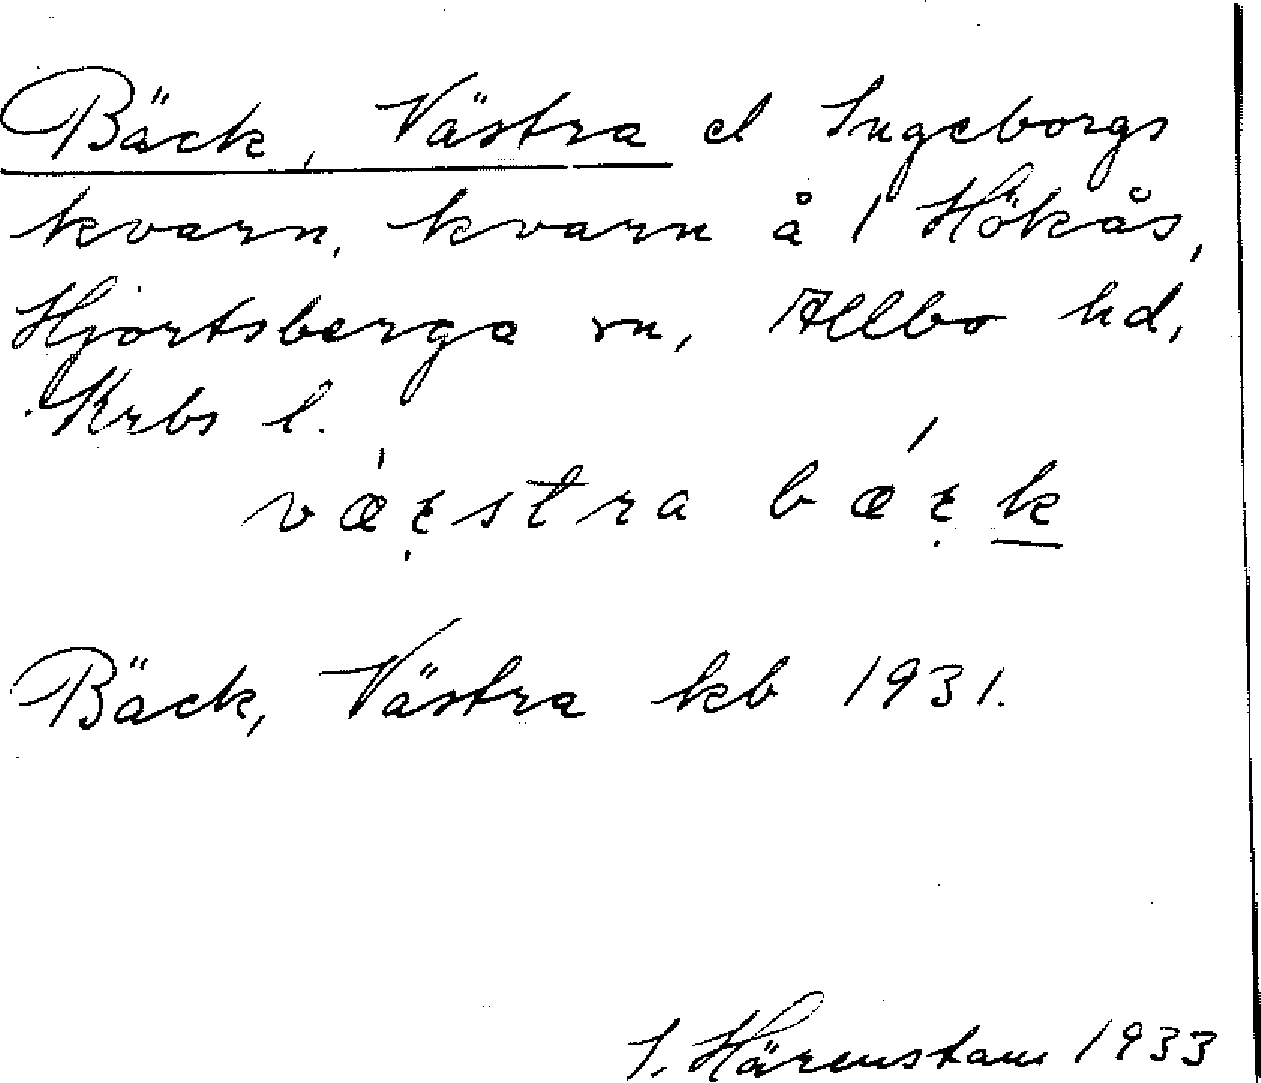 Bäck, Västra el Ingeborgs
kvarn, kvarn å 1 Hökås,
Hjortsberga sn, Allbo hd,
Krbs l.
Bäck, Västra kb 1931.
J. Härenstam 1933